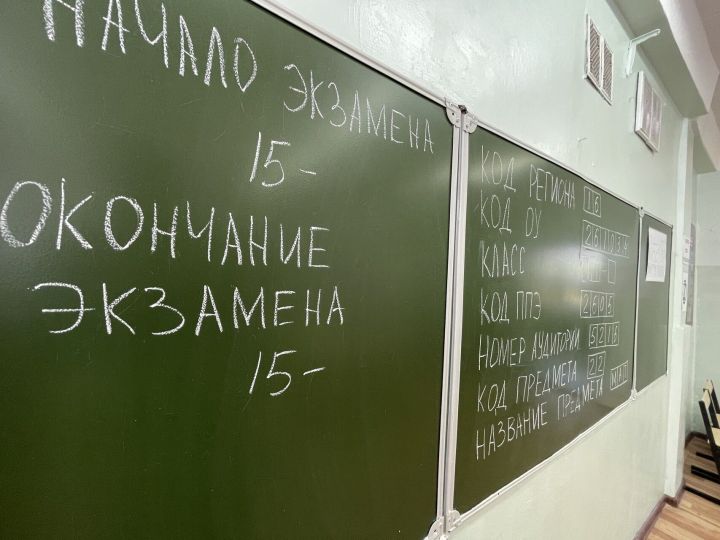 НАЧАЛО ЭКЗАМЕНА
15-
ОКОНЧАНИЕ
ЭКЗАМЕНА
15-
КОД РЕГИОНА 16
КОД ОУ 261034
КЛАСС
КОД ППЭ 2605
НОМЕР АУДИТОРИИ 5216
КОД ПРЕДМЕТА 22
НАЗВАНИЕ ПРЕДМЕТА МАТ